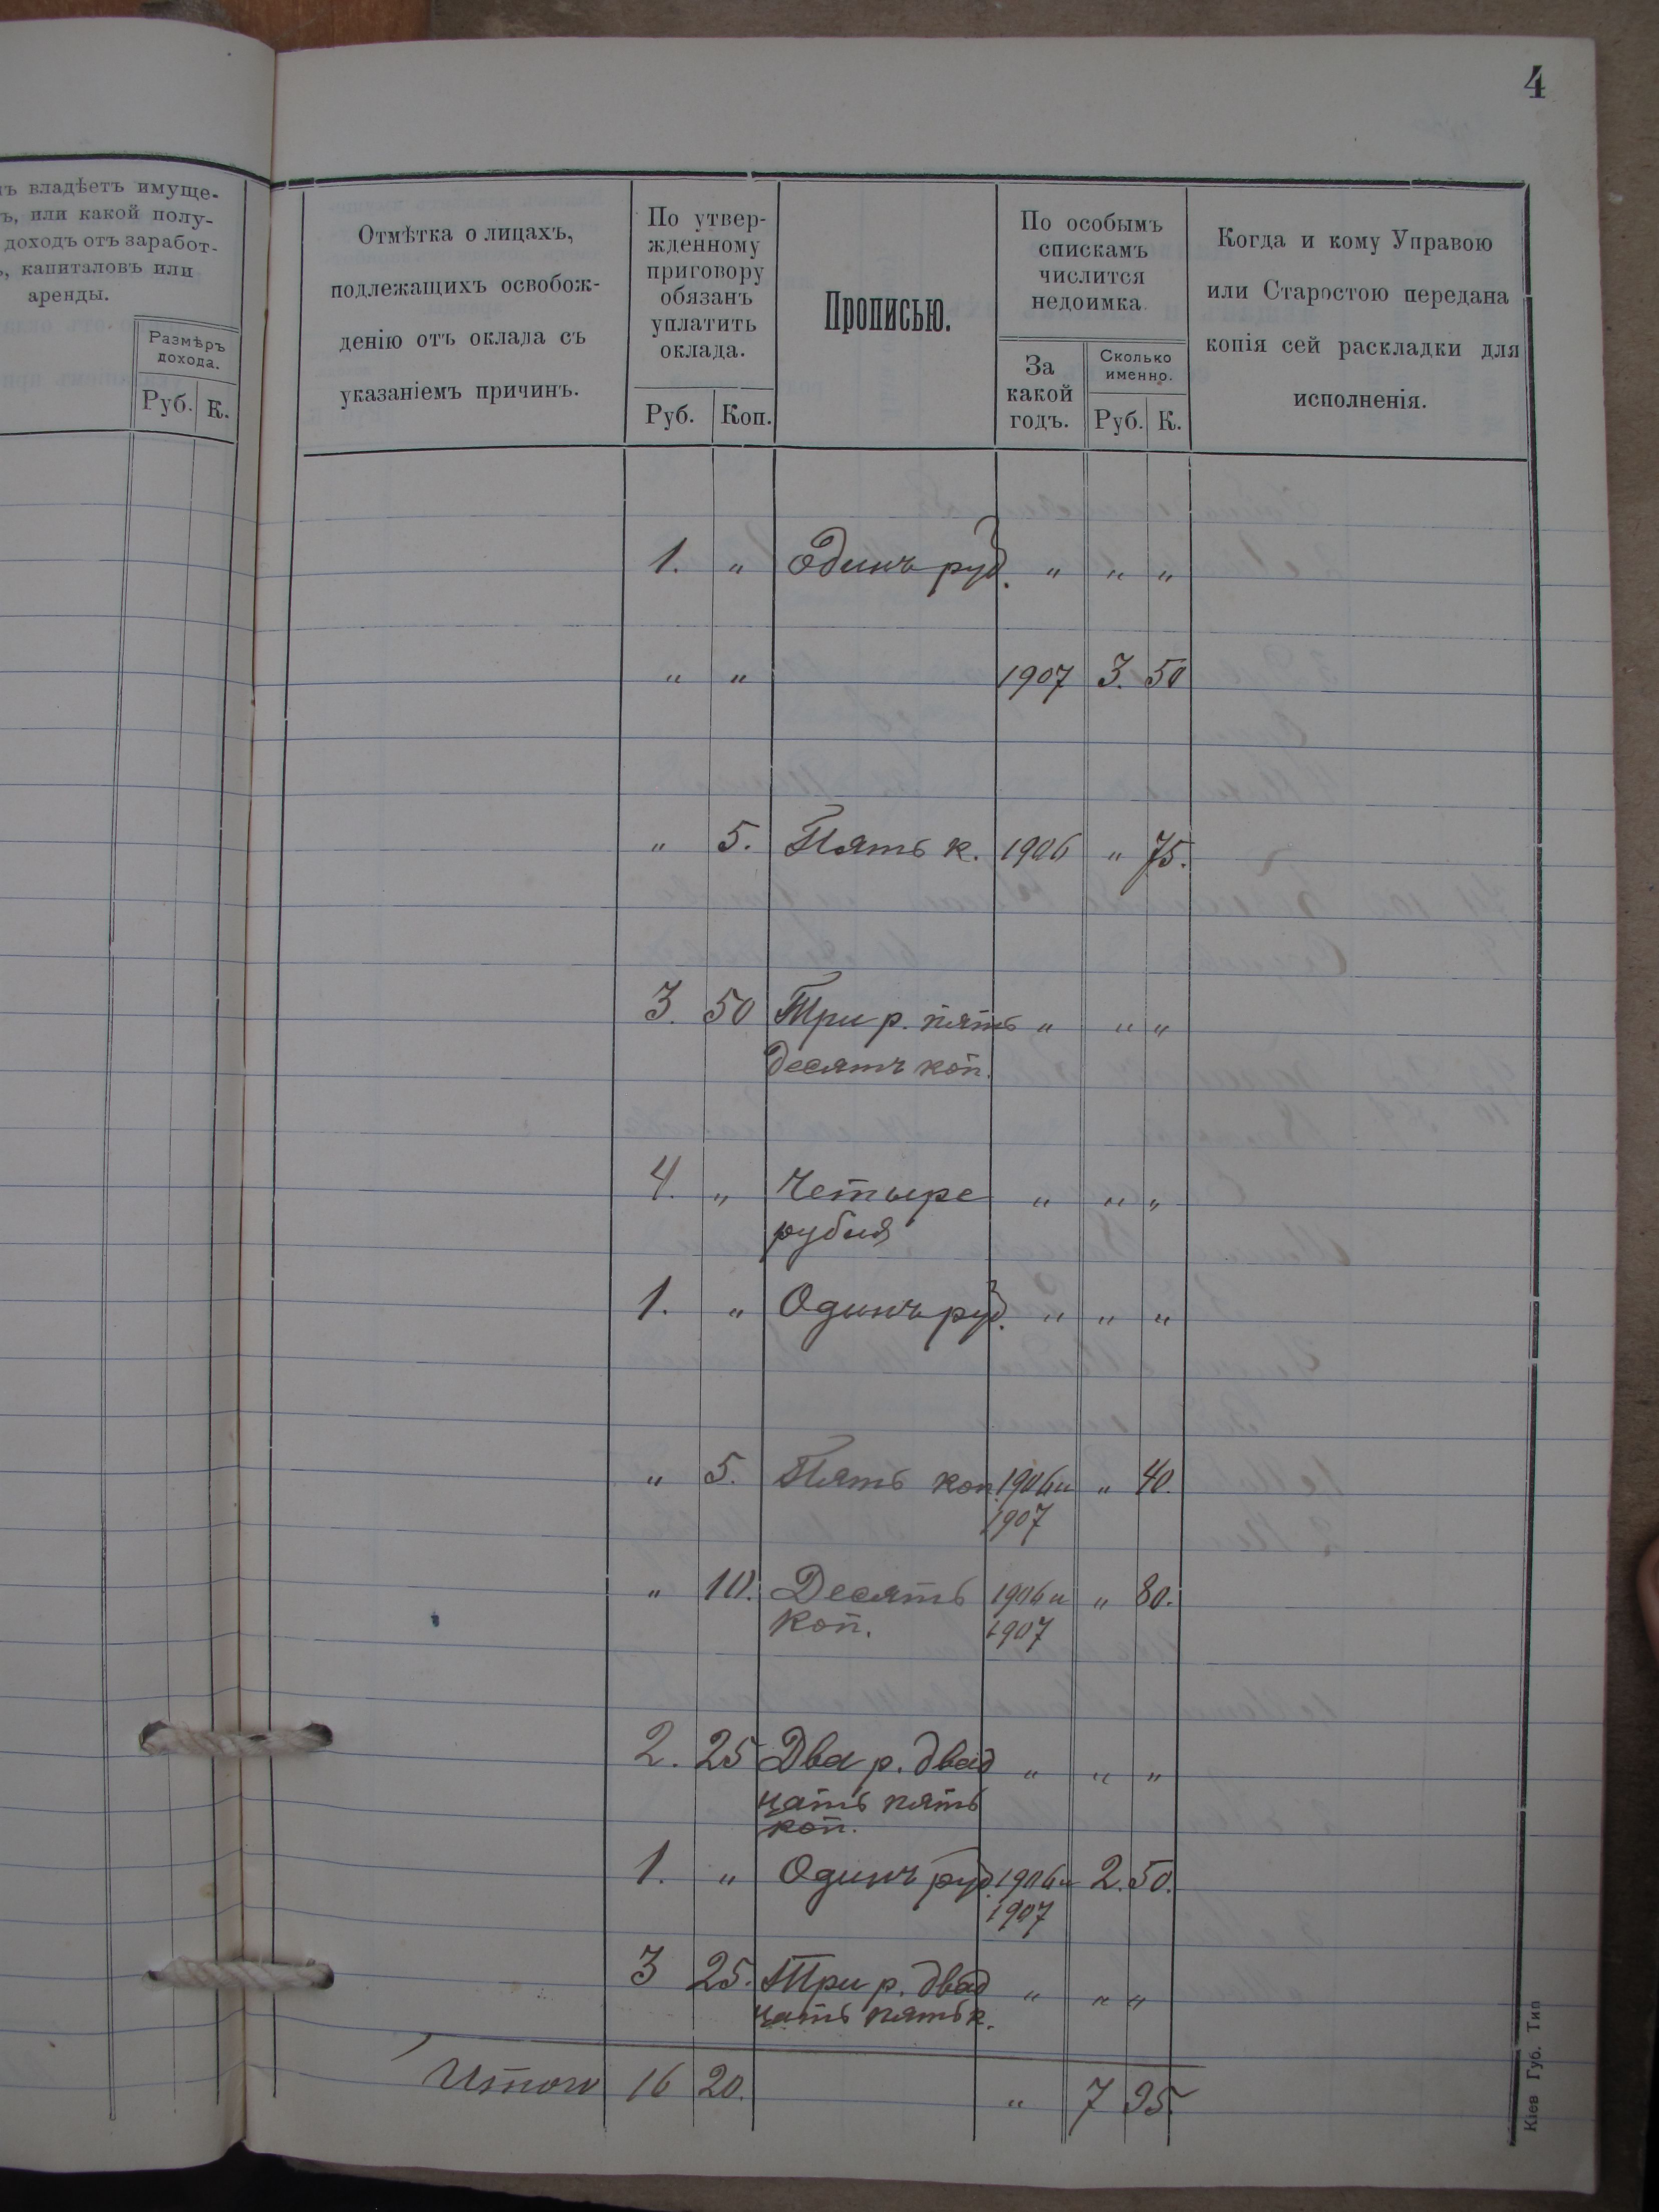 4
ъ владѣетъ имуще-
ъ, или какой полу-
доходъ отъ заработ-
ъ, капиталовъ или
аренды.
Размѣръ
дохода.
Руб. К.
Отмѣтка о лицахъ,
подлежащихъ освобож-
денію отъ оклада съ
указаніемъ причинъ.
По утвер-
жденному
приговору
обязанъ
уплатить
оклада.
Руб. Коп.
Прописью.
По особымъ
спискамъ
числится
недоимка.
За
какой
годъ.
Сколько
именно.
Руб. К.
Когда и кому Управою
или Старостою передана
копія сей раскладки для
исполненія.
1. „ Одинъ руб. „ „ „
„ „ 1907 3. 50
„ 5. Пять к. 1906 „ 75.
3. 50 Три р. пять „ „ „
десятъ коп.
4. „ Четыре „ „ „
рубля
1. „ Одинъ руб. „ „ „
„ 5. Пять коп. 1906 и „ 40.
1907
„ 10. Десять 1906 и „ 80.
коп. 1907
2. 25 Два р. двад „ „ „
цать пять
коп.
1. „ Одинъ руб. 1906 и 2. 50.
1907
3 25. Три р. двад „ „ „
цать пять к.
Итого 16 20. „ 7 95.
Кіев Губ. Тип